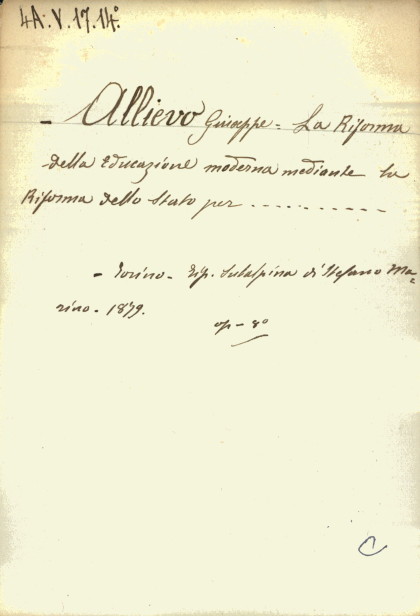 4A. V. 17. 14°.
- Allievo Giuseppe - La Riforma
della Educazione moderna mediante la
Riforma dello Stato per ..........
- Torino - Tip. Subalpina di Stefano Ma-
rino - 1879.
op - 8°
C